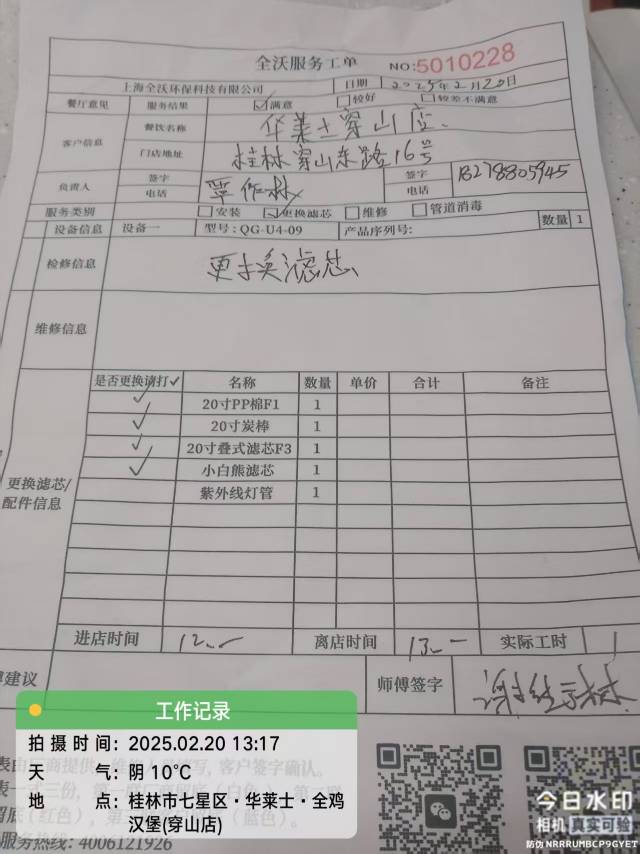 全沃服务工单 NO:5010228
上海全沃环保科技有限公司 日期 2025年2月20日
餐厅意见 服务结果 ☑满意 □较好 □较差不满意
客户信息 餐饮名称 华莱士穿山店
门店地址 桂林穿山东路16号
负责人 签字 签字
电话 电话 18278805945
服务类别 □安装 ☑更换滤芯 □维修 □管道消毒
设备信息 设备一 型号:QG-U4-09 产品序列号: 数量 1
检修信息 更换滤芯
维修信息
更换滤芯/配件信息
是否更换请打✓ 名称 数量 单价 合计 备注
✓ 20寸PP棉F1 1
✓ 20寸炭棒 1
✓ 20寸叠式滤芯F3 1
✓ 小白熊滤芯 1
紫外线灯管 1
进店时间 12.-- 离店时间 13.-- 实际工时 1
建议 师傅签字
工作记录
拍摄时间:2025.02.20 13:17
天气:阴 10°C
地点:桂林市七星区·华莱士·全鸡
汉堡(穿山店)
客户签字确认。
一式三份,
(红色),
(蓝色)。
服务热线:4006121926
今日水印
相机 真实可验
防伪 NRRRUMBCP9GYET